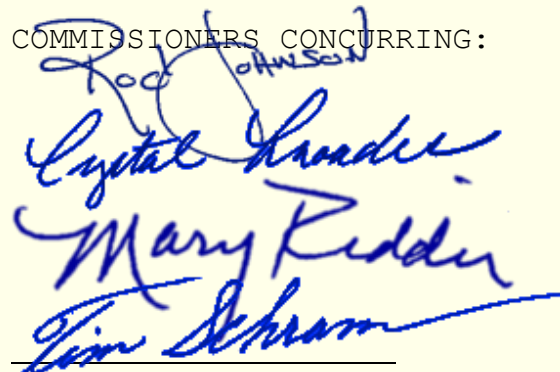 COMMISSIONERS CONCURRING:
Rod Johnson
Crystal Rhoades
Mary Ridder
Tim Schram